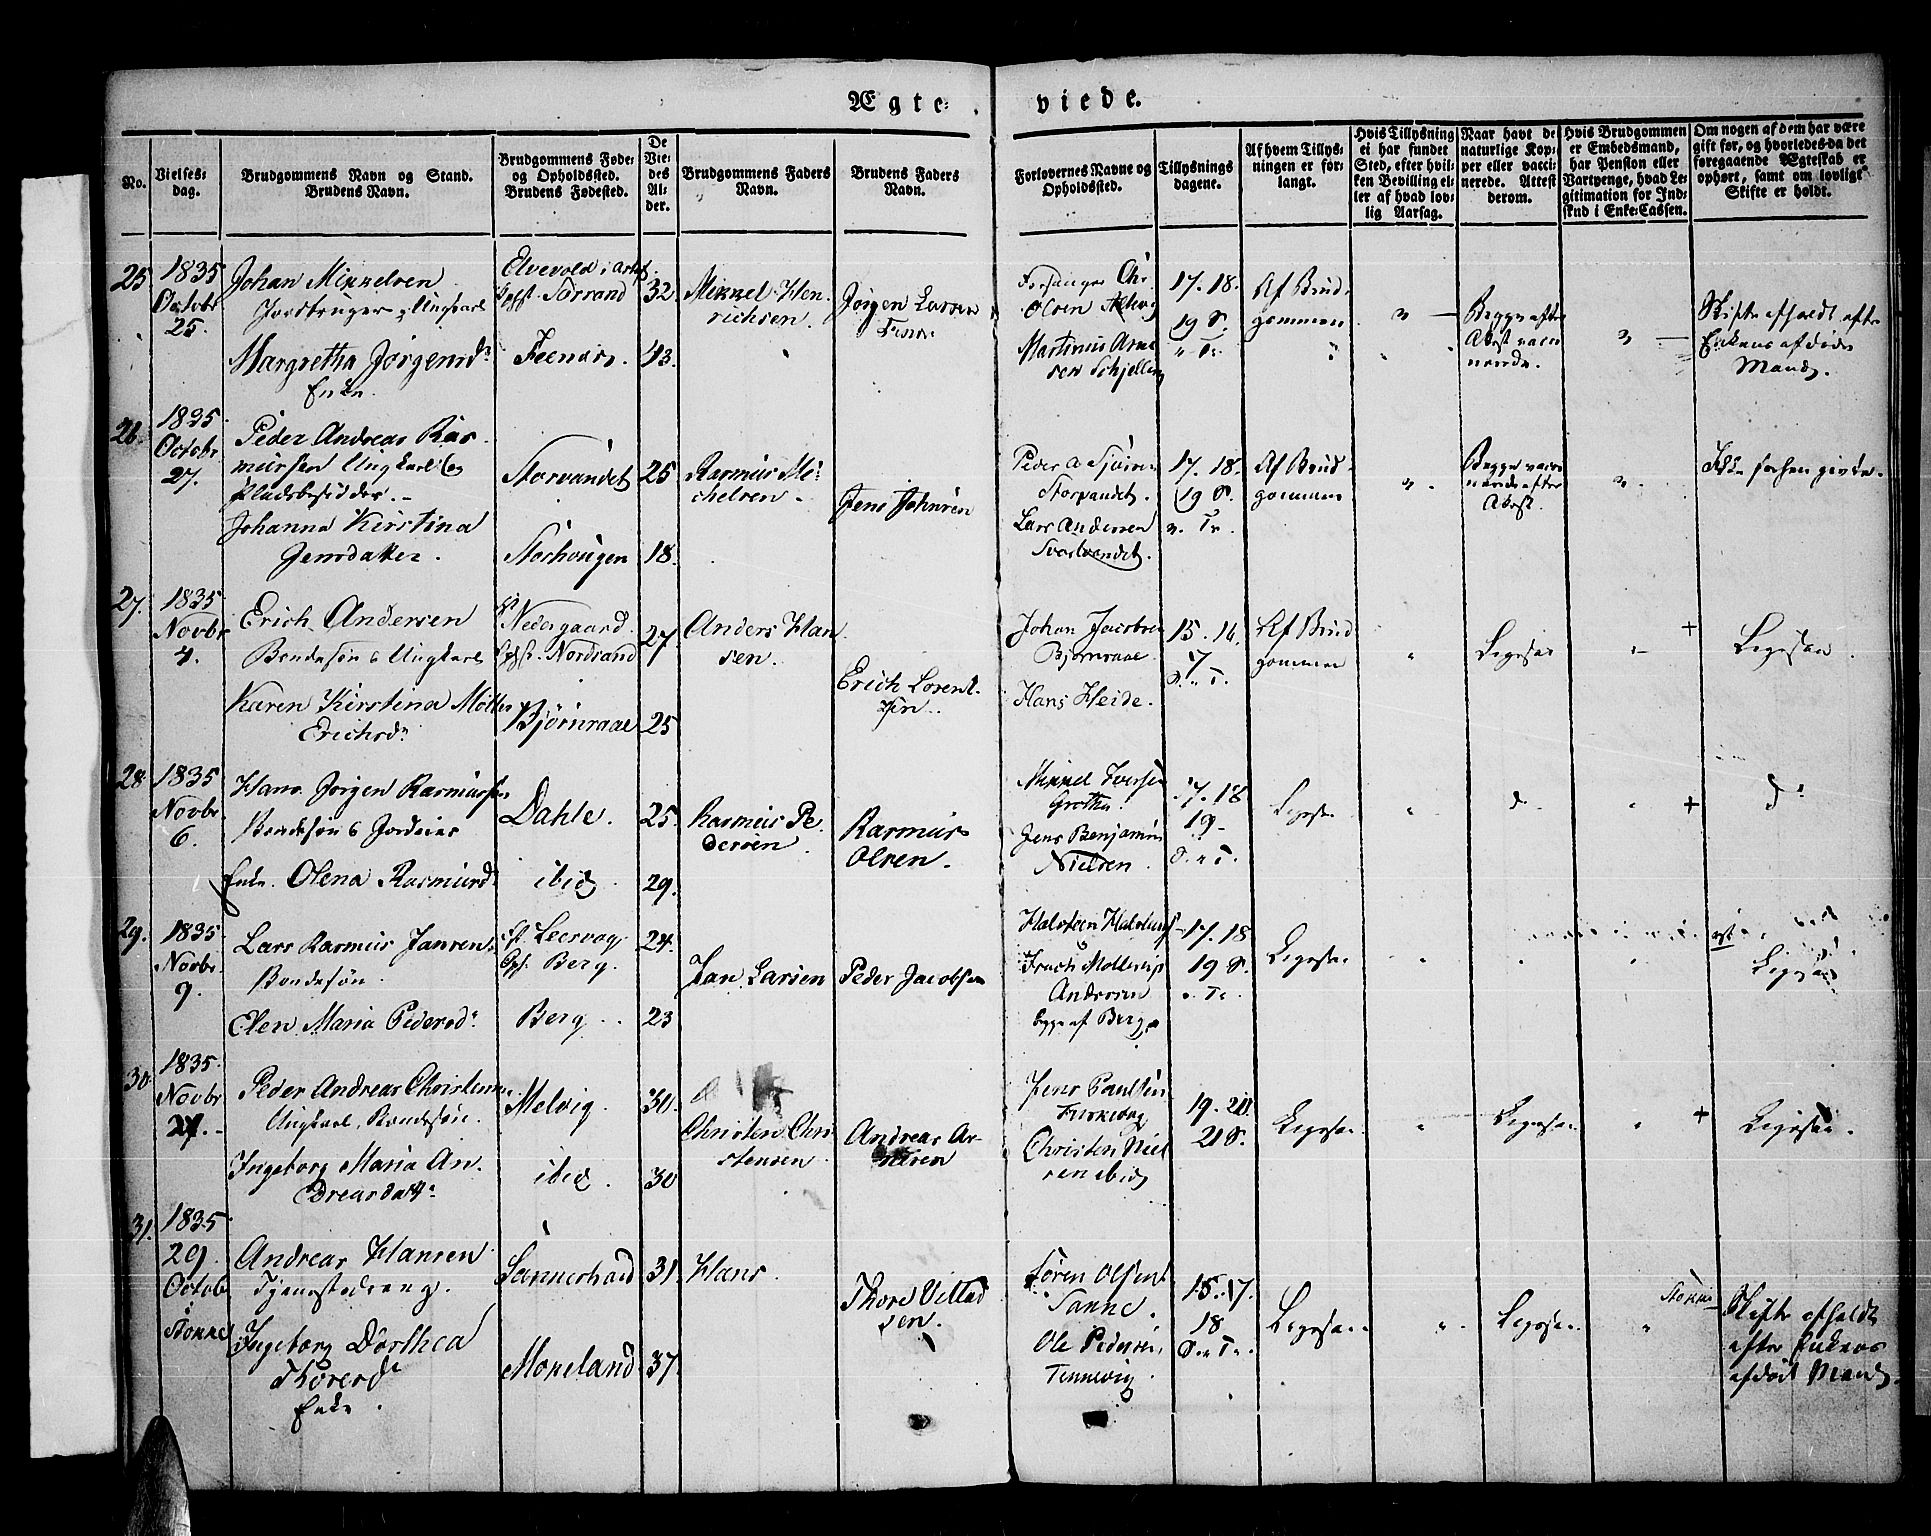 Ægte. viede.
No.
Vielses-
dag.
Brudgommens Navn og Stand.
Brudens Navn.
Brudgommens Føde-
og Opholdssted.
Brudens Fødested.
De
Vie-
des
Al-
der.
Brudgommens Faders
Navn.
Brudens Faders
Navn.
Forlovernes Navne og
Opholdssted.
Tillysnings
dagene.
Af hvem Tillys-
ningen er for-
langt.
Hvis Tillysning
ei har fundet
Sted, efter hvil-
ken Bevilling el-
ler af hvad lov-
lig Aarsag.
Naar havt de
naturlige Kop-
per eller vacci-
nerede. Attest
derom.
Hvis Brudgommen
er Embedsmand,
har Pension eller
Vartpenge, hvad Le-
gitimation for Ind-
skud i Enke-Cassen.
Om nogen af dem har være
gift før, og hvorledes da det
foregaaende Ægteskab er
ophørt, samt om lovligt
Skifte er holdt.
25.
1835
Octobr
25.
Johan Mikkelsen
Jordbruger og Ungkarl
Margretha Jørgensdr
Enke.
Elvevold i
Sørrand
32
43.
Mikkel Hen-
richsen.
Jørgen Larsen
17. 18.
19 S.
" Tr.
Af Brud-
gommen
Martinus Arne
sen Schjelling
Begge efter
Attest vacci
nerede.
Skifte afholdt efter
Enkens afdøde
Mand.
26.
1835
Octobr
27.
Peder Andreas Ras
mussen Ungkarl og
Pladsbesidder. -
Johanna Kirstina
Jensdatter.
Storvandet
Storhougen
25
18.
Rasmus Mi-
chelsen -
Jens Johnsen
Peder
Storvandet.
Lars Andersen
Storvandet.
17. 18.
19 S.
n. Tr.
Af Brud-
gommen
Begge vacci
nerede efter
Attest.
Ikke forhen givte.
27.
1835
Novbr
4.
Erich Andersen
Bondesøn & Ungkarl
Karen Kirstina Möller
Erichsdr
Nedergaard
Nordrand
Bjørnraae
27
25
Anders Han
sen.
Erich Lorent-
zen.
Johan Jacobsen
Bjørnraae.
Hans Heide.
15. 16.
17
S. n T.
Af Brud
gommen
Ligesaa
+
Ligesaa.
28.
1835
Novbr
6.
Hans Jørgen Rasmussen
Bondesøn & Jordeier
Enke. Olena Rasmusd.
Dahle.
ibid.
25.
29.
Rasmus Pe-
dersen
Rasmus
Olsen.
Mikkel Iversen
Jens Benjamin
Nielsen.
17. 18
19 -
S. n T.
Ligesaa
do
+
do
29.
1835
Novbr
9.
Lars Rasmus Jansen
Bondesøn.
Elen Maria Pedersdr
Leervog
Berg.
Berg.
24.
23
Jan Larsen
Peder Jacobsen
Andersen
begge af Berg.
17. 18
19 S.
n. Tr.
Ligesaa
Ligesaa
30.
1835.
Novbr
27. -
Peder Andreas Christensen
Ungkarl, Bondesøn.
Ingeborg Maria An-
dreasdattr
Melvig.
ibid.
30.
30
Christen Chri-
stensen
Andreas Ar-
nesen
Jens Paulsen
Christen Niel
sen ibid
19. 20.
21 S.
Ligesaa
Ligesaa.
+
Ligesaa.
31.
1835
29.
Octob
i
Stokke
Andreas Hansen
Tjenestedreng.
Ingeborg Dorthea
Thoresdr
Enke.
Moneland
31.
37.
Hans.
Thore Villad
sen.
Sören Olsen
Sanne.
Ole Pedersen,
Tennevig.
15. 17.
18
S. n Tr.
Ligesaa.
Ligesaa.
Stokke
Skifte afholdt
efter Enkens
afdøde Mand.